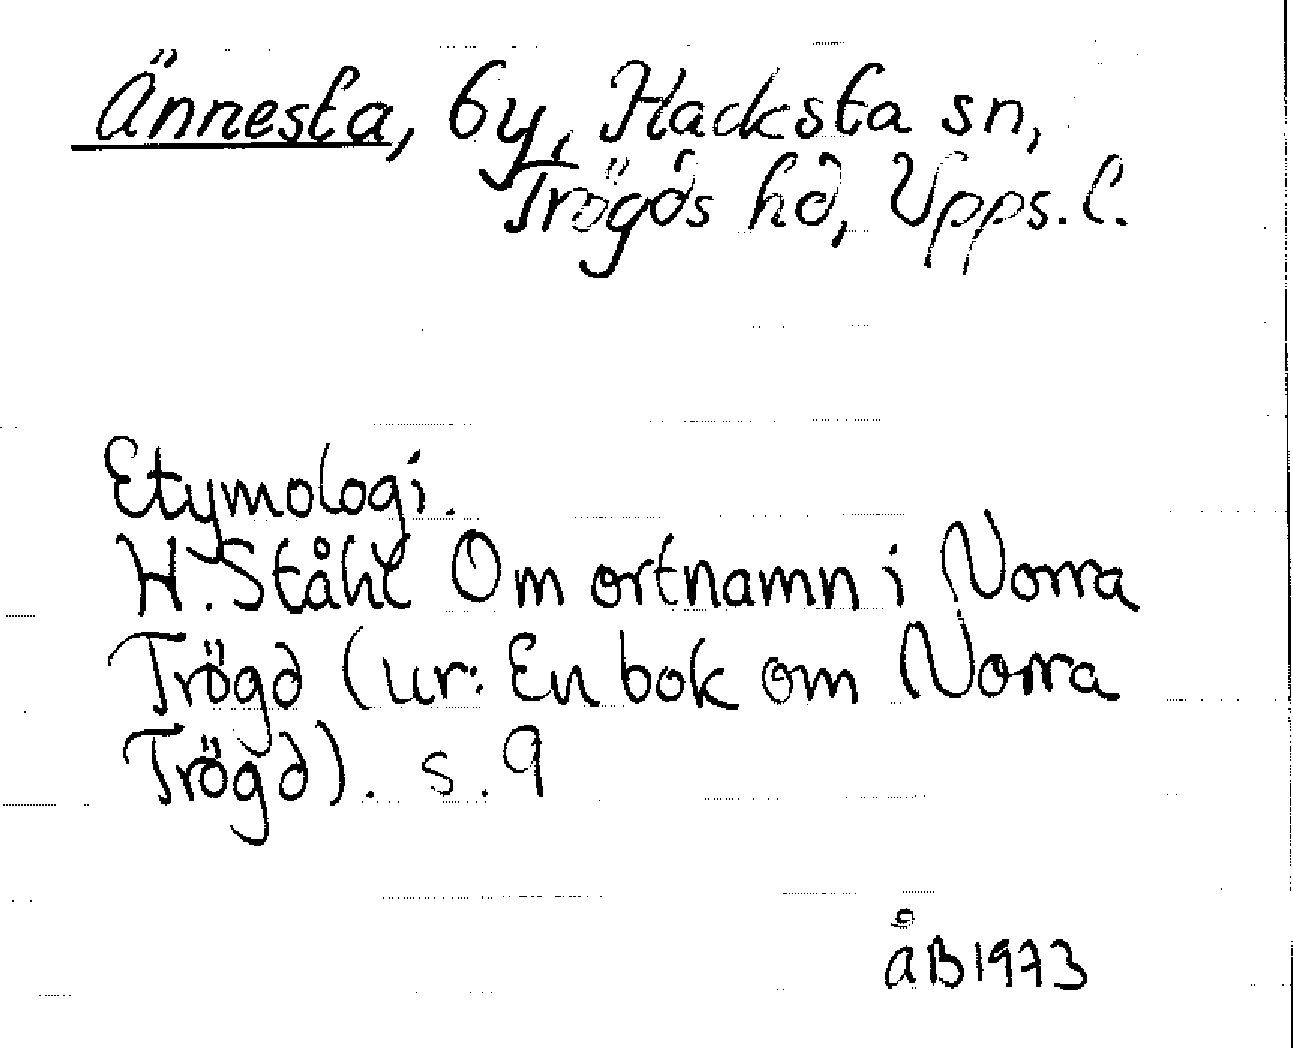 Ännesta, by, Hacksta sn,
Trögds hd, Upps. l.
Etymologi.
H. Ståhl Om ortnamn i Norra
Trögd (ur: En bok om Norra
Trögd). s. 9
åB 1973